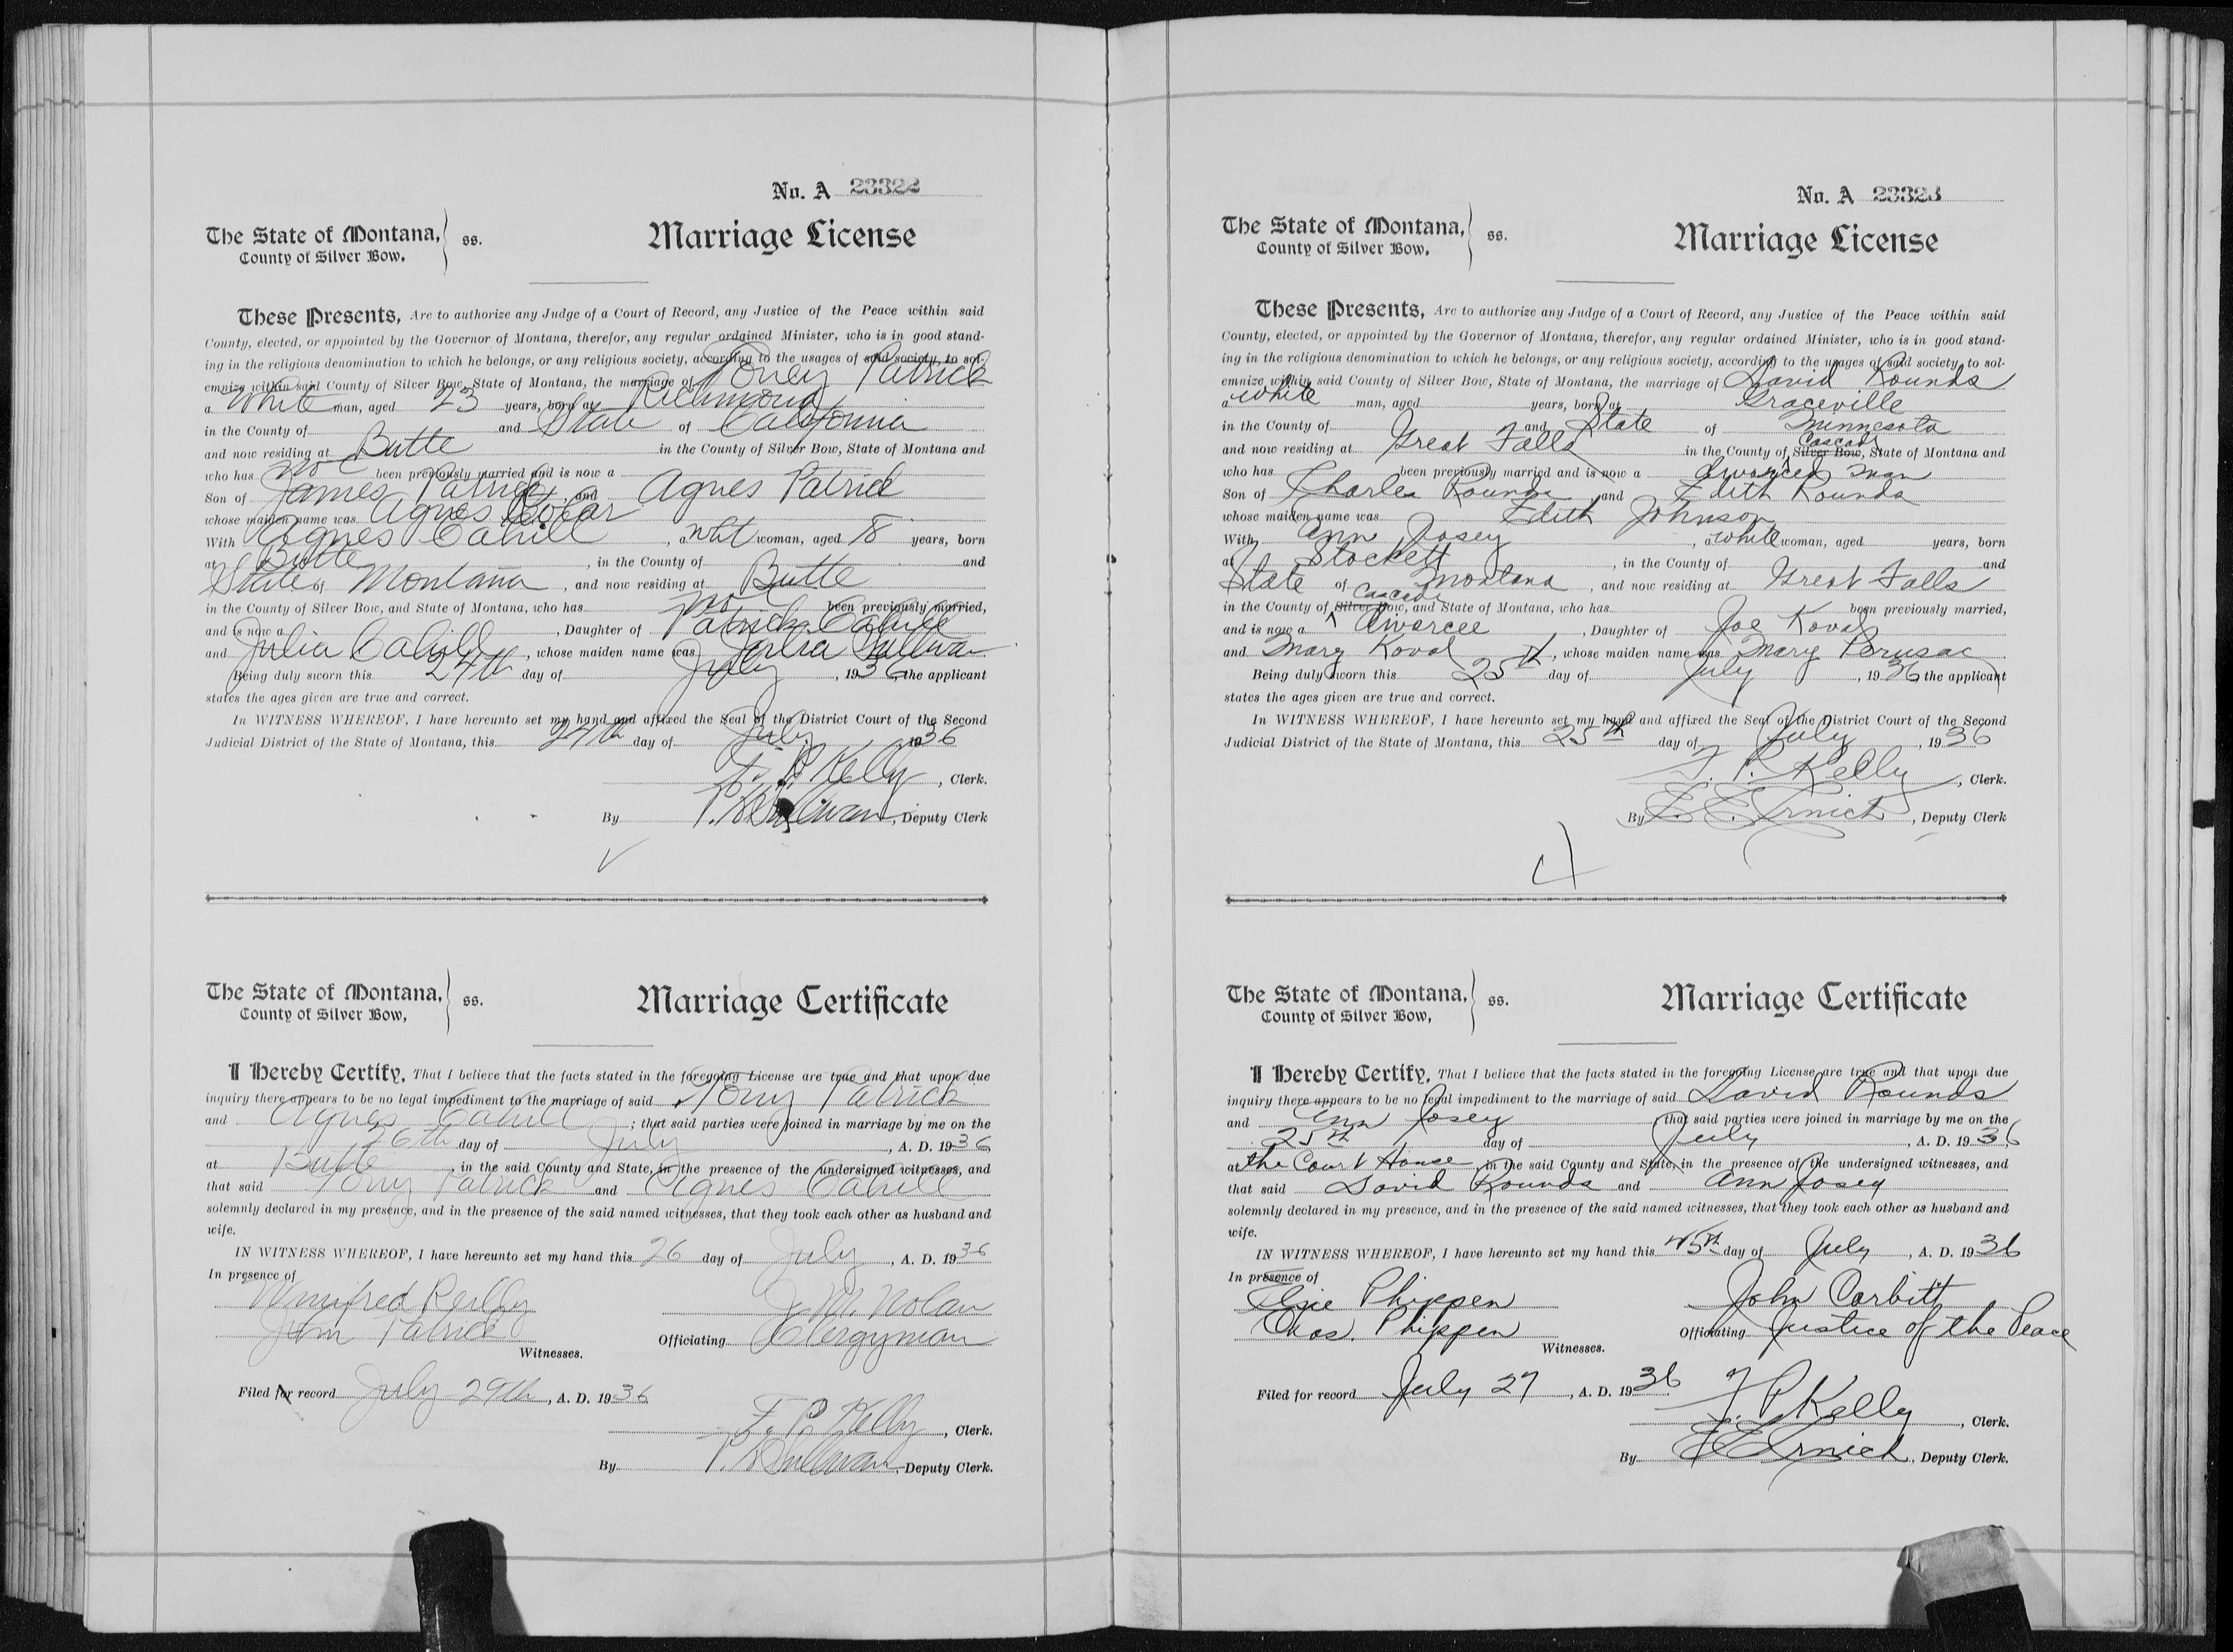 No. A 23322
The State of Montana, ss. Marriage License
County of Silver Bow,
These Presents, Are to authorize any Judge of a Court of Record, any Justice of the Peace within said
County, elected, or appointed by the Governor of Montana, therefor, any regular ordained Minister, who is in good stand-
ing in the religious denomination to which he belongs, or any religious society, according to the usages of said society, to sol-
emnize within said County of Silver Bow, State of Montana, the marriage of Toney Patrick
a White man, aged 23 years, born at Richmond
in the County of and State of California
and now residing at Butte in the County of Silver Bow, State of Montana and
who has not been previously married and is now a
Son of James Patrick and Agnes Patrick
whose maiden name was Agnes
With Agnes Cahill, a wht woman, aged 18 years, born
at Butte, in the County of and
State of Montana, and now residing at Butte
in the County of Silver Bow, and State of Montana, who has not been previously married,
and is now a, Daughter of Patrick Cahill
and Julia Cahill, whose maiden name was Julia Sullivan
Being duly sworn this 24th day of July, 1936, the applicant
states the ages given are true and correct.
In WITNESS WHEREOF, I have hereunto set my hand and affixed the Seal of the District Court of the Second
Judicial District of the State of Montana, this 24th day of July 1936
F. P. Kelly, Clerk.
By P. H. Sullivan, Deputy Clerk
The State of Montana, ss. Marriage Certificate
County of Silver Bow,
I Hereby Certify, That I believe that the facts stated in the foregoing License are true and that upon due
inquiry there appears to be no legal impediment to the marriage of said Tony Patrick
and Agnes Cahill; that said parties were joined in marriage by me on the
26th day of July, A. D. 1936
at Butte, in the said County and State, in the presence of the undersigned witnesses, and
that said Tony Patrick and Agnes Cahill
solemnly declared in my presence, and in the presence of the said named witnesses, that they took each other as husband and
wife.
IN WITNESS WHEREOF, I have hereunto set my hand this 26 day of July, A. D. 1936
In presence of
Winifred Reilly J. M. Nolan
John Patrick Officiating Clergyman
Witnesses.
Filed for record July 29th, A. D. 1936
F. P. Kelly, Clerk.
By P. H. Sullivan, Deputy Clerk.
No. A 23323
The State of Montana, ss. Marriage License
County of Silver Bow,
These Presents, Are to authorize any Judge of a Court of Record, any Justice of the Peace within said
County, elected, or appointed by the Governor of Montana, therefor, any regular ordained Minister, who is in good stand-
ing in the religious denomination to which he belongs, or any religious society, according to the usages of said society, to sol-
emnize within said County of Silver Bow, State of Montana, the marriage of David Rounds
a White man, aged years, born at Graceville
in the County of and State of Minnesota
and now residing at Great Falls in the County of Silver Bow, Cascade State of Montana and
who has been previously married and is now a divorced man
Son of Charles Rounds and Edith Rounds
whose maiden name was Edith Johnson
With Ann Josey, a white woman, aged years, born
at Stockett, in the County of and
State of Montana, and now residing at Great Falls
in the County of Silver Bow, Cascade and State of Montana, who has been previously married,
and is now a divorcee, Daughter of Joe Koval
and Mary Koval, whose maiden name was Mary Perusac
Being duly sworn this 25th day of July, 1936, the applicant
states the ages given are true and correct.
In WITNESS WHEREOF, I have hereunto set my hand and affixed the Seal of the District Court of the Second
Judicial District of the State of Montana, this 25th day of July, 1936
F. P. Kelly, Clerk.
By, Deputy Clerk
4
The State of Montana, ss. Marriage Certificate
County of Silver Bow,
I Hereby Certify, That I believe that the facts stated in the foregoing License are true and that upon due
inquiry there appears to be no legal impediment to the marriage of said David Rounds
and Ann Josey that said parties were joined in marriage by me on the
25th day of July, A. D. 1936
at the Court House in the said County and State, in the presence of the undersigned witnesses, and
that said David Rounds and Ann Josey
solemnly declared in my presence, and in the presence of the said named witnesses, that they took each other as husband and
wife.
IN WITNESS WHEREOF, I have hereunto set my hand this 25th day of July, A. D. 1936
In presence of
Elsie Phippen John Corbitt
Chas. Phippen Officiating Justice of the Peace
Witnesses.
Filed for record July 27, A. D. 1936
F. P. Kelly, Clerk.
By, Deputy Clerk.